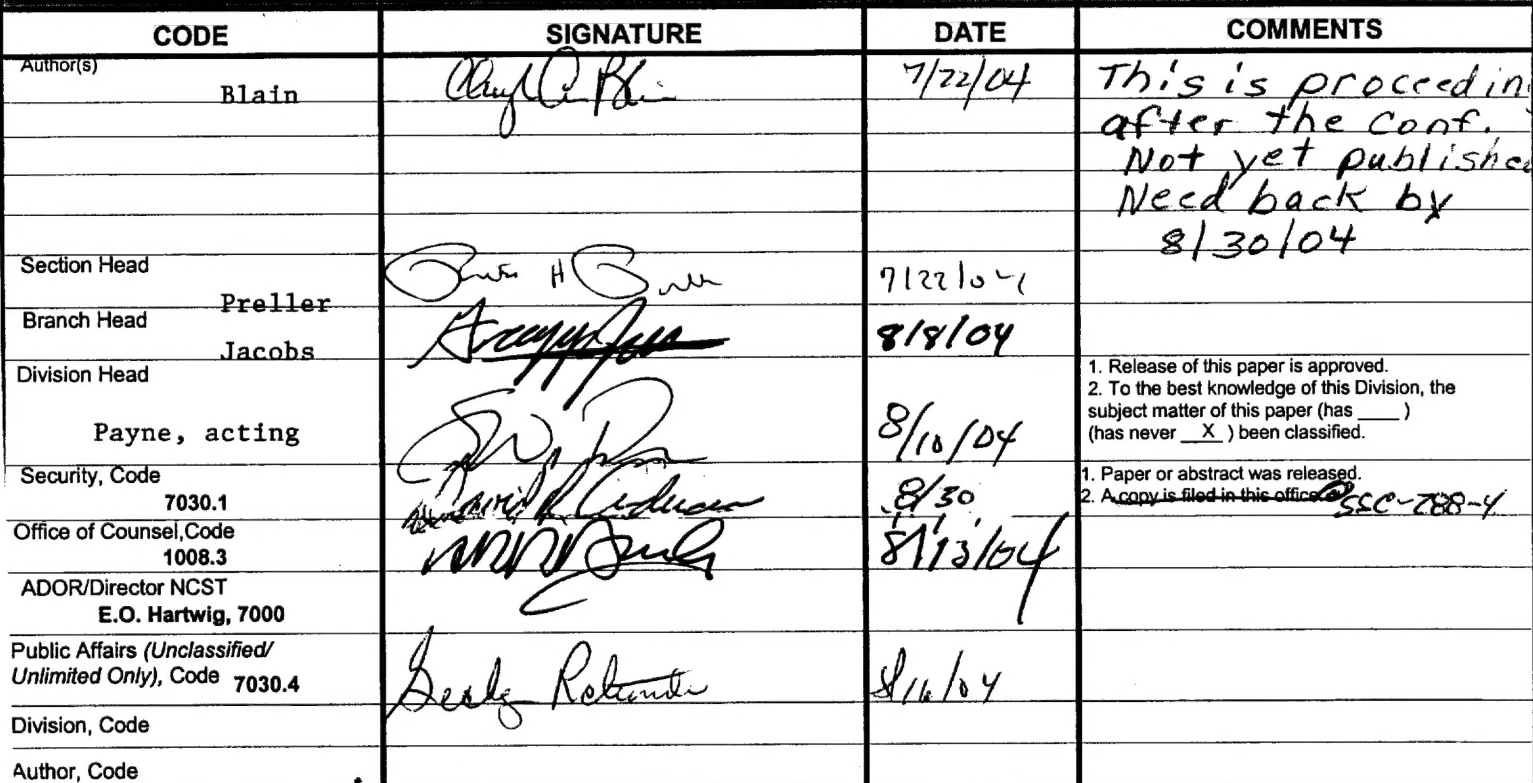 CODE SIGNATURE DATE COMMENTS
Author(s)
Blain 7/22/04 This is proceedin
after the Conf.
Not yet publishe
Need back by
8/30/04
Section Head
Preller 7/22/04
Branch Head
Jacobs 8/8/04
Division Head
Payne, acting 8/10/04
1. Release of this paper is approved.
2. To the best knowledge of this Division, the
subject matter of this paper (has ____ )
(has never __X__ ) been classified.
Security, Code
7030.1 8/30
1. Paper or abstract was released.
2. A copy is filed in this office SSC-788-4
Office of Counsel,Code
1008.3 8/13/04
ADOR/Director NCST
E.O. Hartwig, 7000
Public Affairs (Unclassified/
Unlimited Only), Code 7030.4 8/16/04
Division, Code
Author, Code